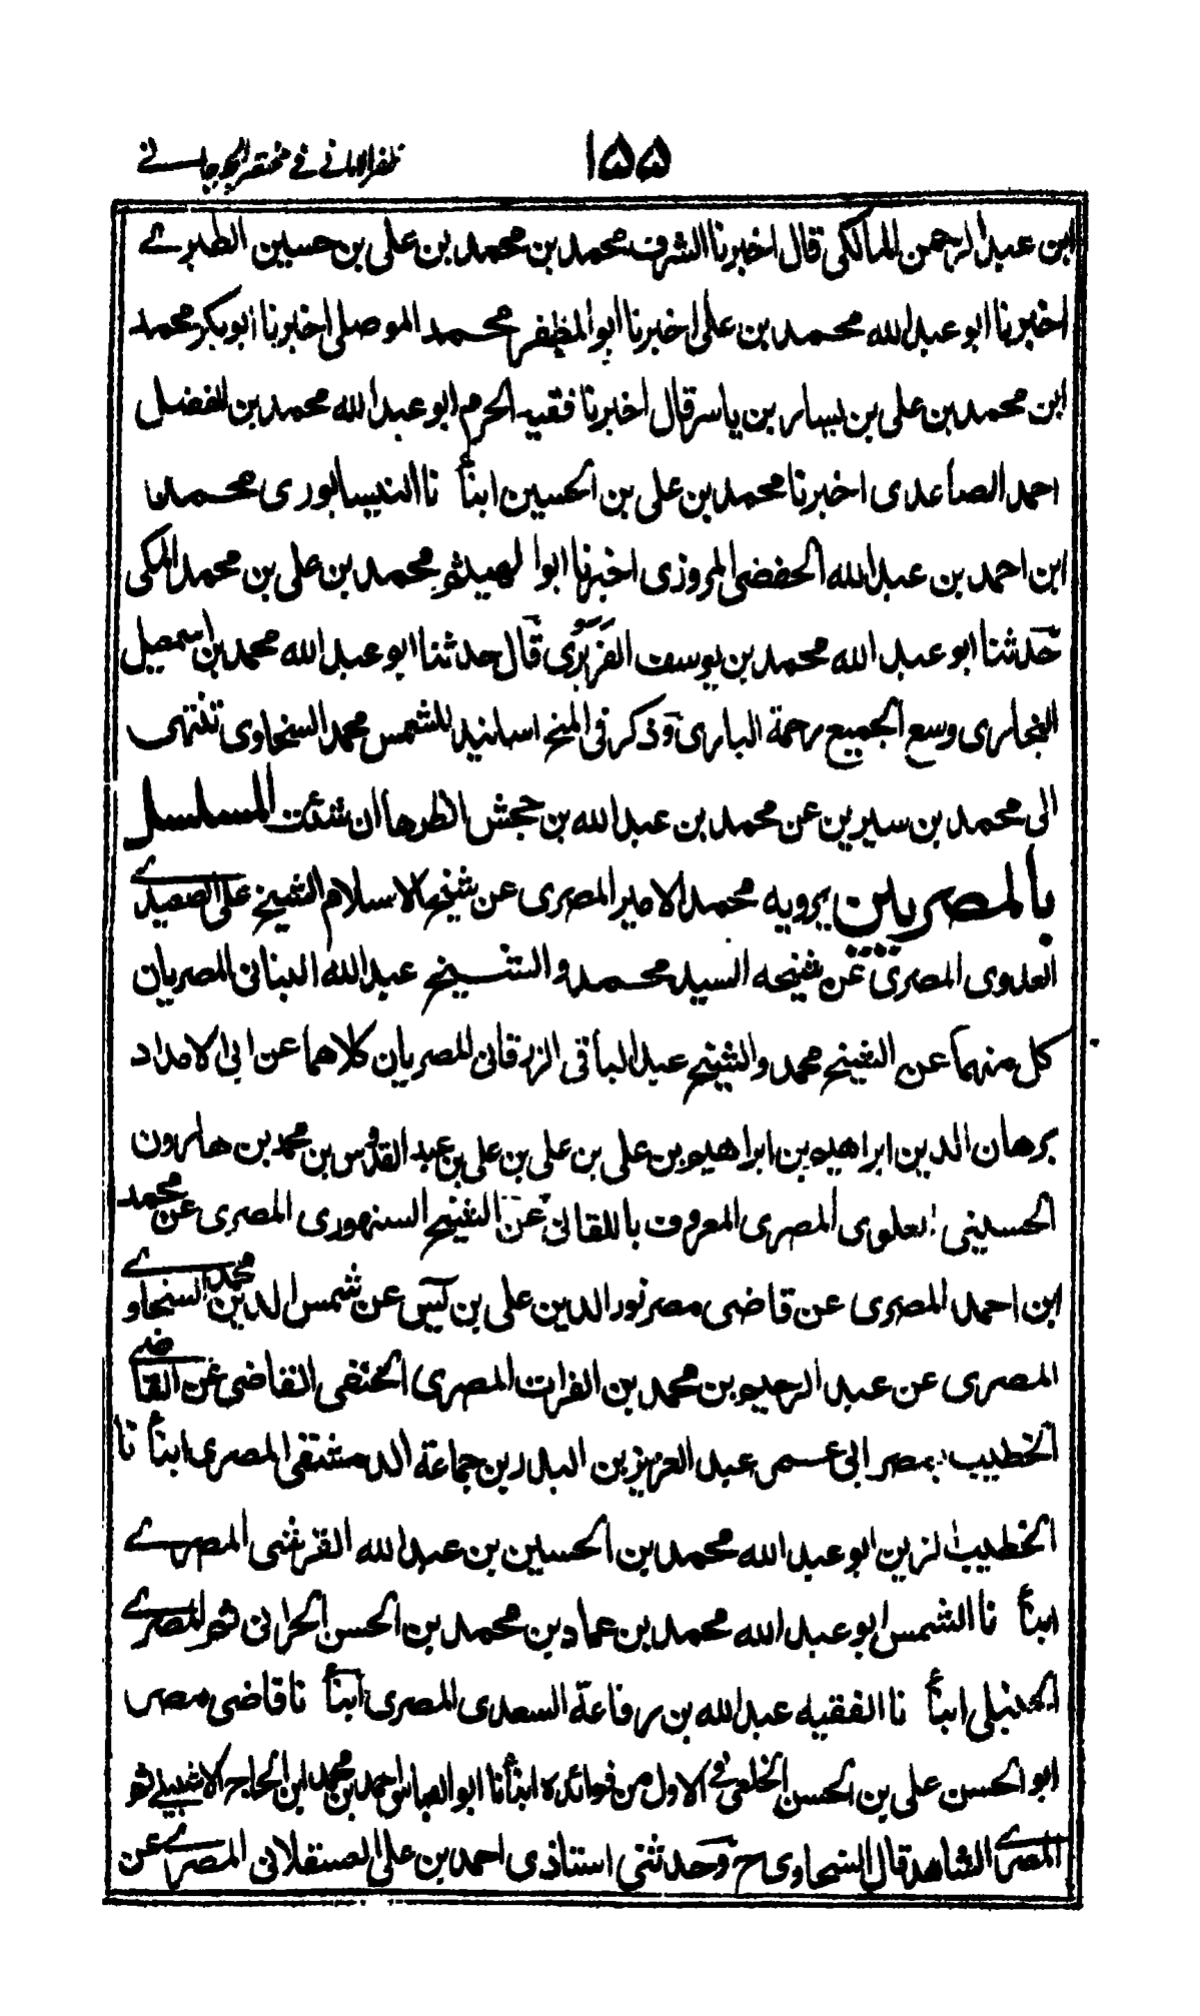 ١٥٥ ظفر الامانی فی مختصر الجرجانے
ابن عبد الرحمن المالكى قال اخبرنا الشرف محمد بن محمد بن على بن حسين الطبرے
اخبرنا ابو عبد الله محمد بن على اخبرنا ابو المظفر محمد الموصلى اخبرنا ابو بكر محمد
ابن محمد بن على بن يسار بن ياسر قال اخبرنا فقيه الحرم ابو عبد الله محمد بن الفضل
احمد الصاعدى اخبرنا محمد بن على بن الحسين ابنأ نا النيسابورى محمد نا
ابن احمد بن عبد الله الحفضى المروزى اخبرنا ابوا لهيثم محمد بن على بن محمد المكى
حدثنا ابو عبد الله محمد بن يوسف الفربرى قال حدثنا ابو عبد الله محمد بن اسمعيل
البخارى وسع الجميع رحمة البارى وذكر فى المنح اسانيد للشمس محمد السخاوى تنتهى
الى محمد بن سيرين عن محمد بن عبد الله بن حجش انظرها ان شئت المسلسل
بالمصريين يرويه محمد الامير المصرى عن شيخ الاسلام الشيخ على الصعيدے
العدوى المصرى عن شيخه السيد محمد والشيخ عبد الله البنانى المصريان
كل منهما عن الشيخ محمد والشيخ عبد الباقى الزرقانى المصريان كلاهما عن ابى الامداد
برهان الدين ابراهيم بن ابراهيم بن على بن على بن على بن عبد القدوس بن محمد بن هارون
الحسينى العلوى المصرى المعروف باللقانى عن الشيخ السنهورى المصرى عن محمد
ابن احمد المصرى عن قاضى مصر نور الدين على بن يٰسٓ عن شمس الدين محمد السخاوے
المصرى عن عبد الرحيم بن محمد بن الفرات المصرى الحنفى القاضى عن القاضے
الخطيب بمصر ابى عمر عبد العزيز بن البدر بن جماعة الدمشقى المصرى ابنأ نا
الخطيب الزين ابو عبد الله محمد بن الحسين بن عبد الله القرشى المصرے
ابنأ نا الشمس ابو عبد الله محمد بن عماد بن محمد بن الحسن الحرانى ثم المصرے
الحنبلى ابنأ نا الفقيه عبد الله بن رفاعة السعدى المصرى ابنأ نا قاضى مصر
ابو الحسن على بن الحسن الخلعى فى الاول من فوائده ابنأنا ابو العباس احمد بن محمد ابن الحاج الاشبيلے ثم
المصرے الشاهد قال السخاوى ح وحدثنى استاذى احمد بن على العسقلانى المصرے عن